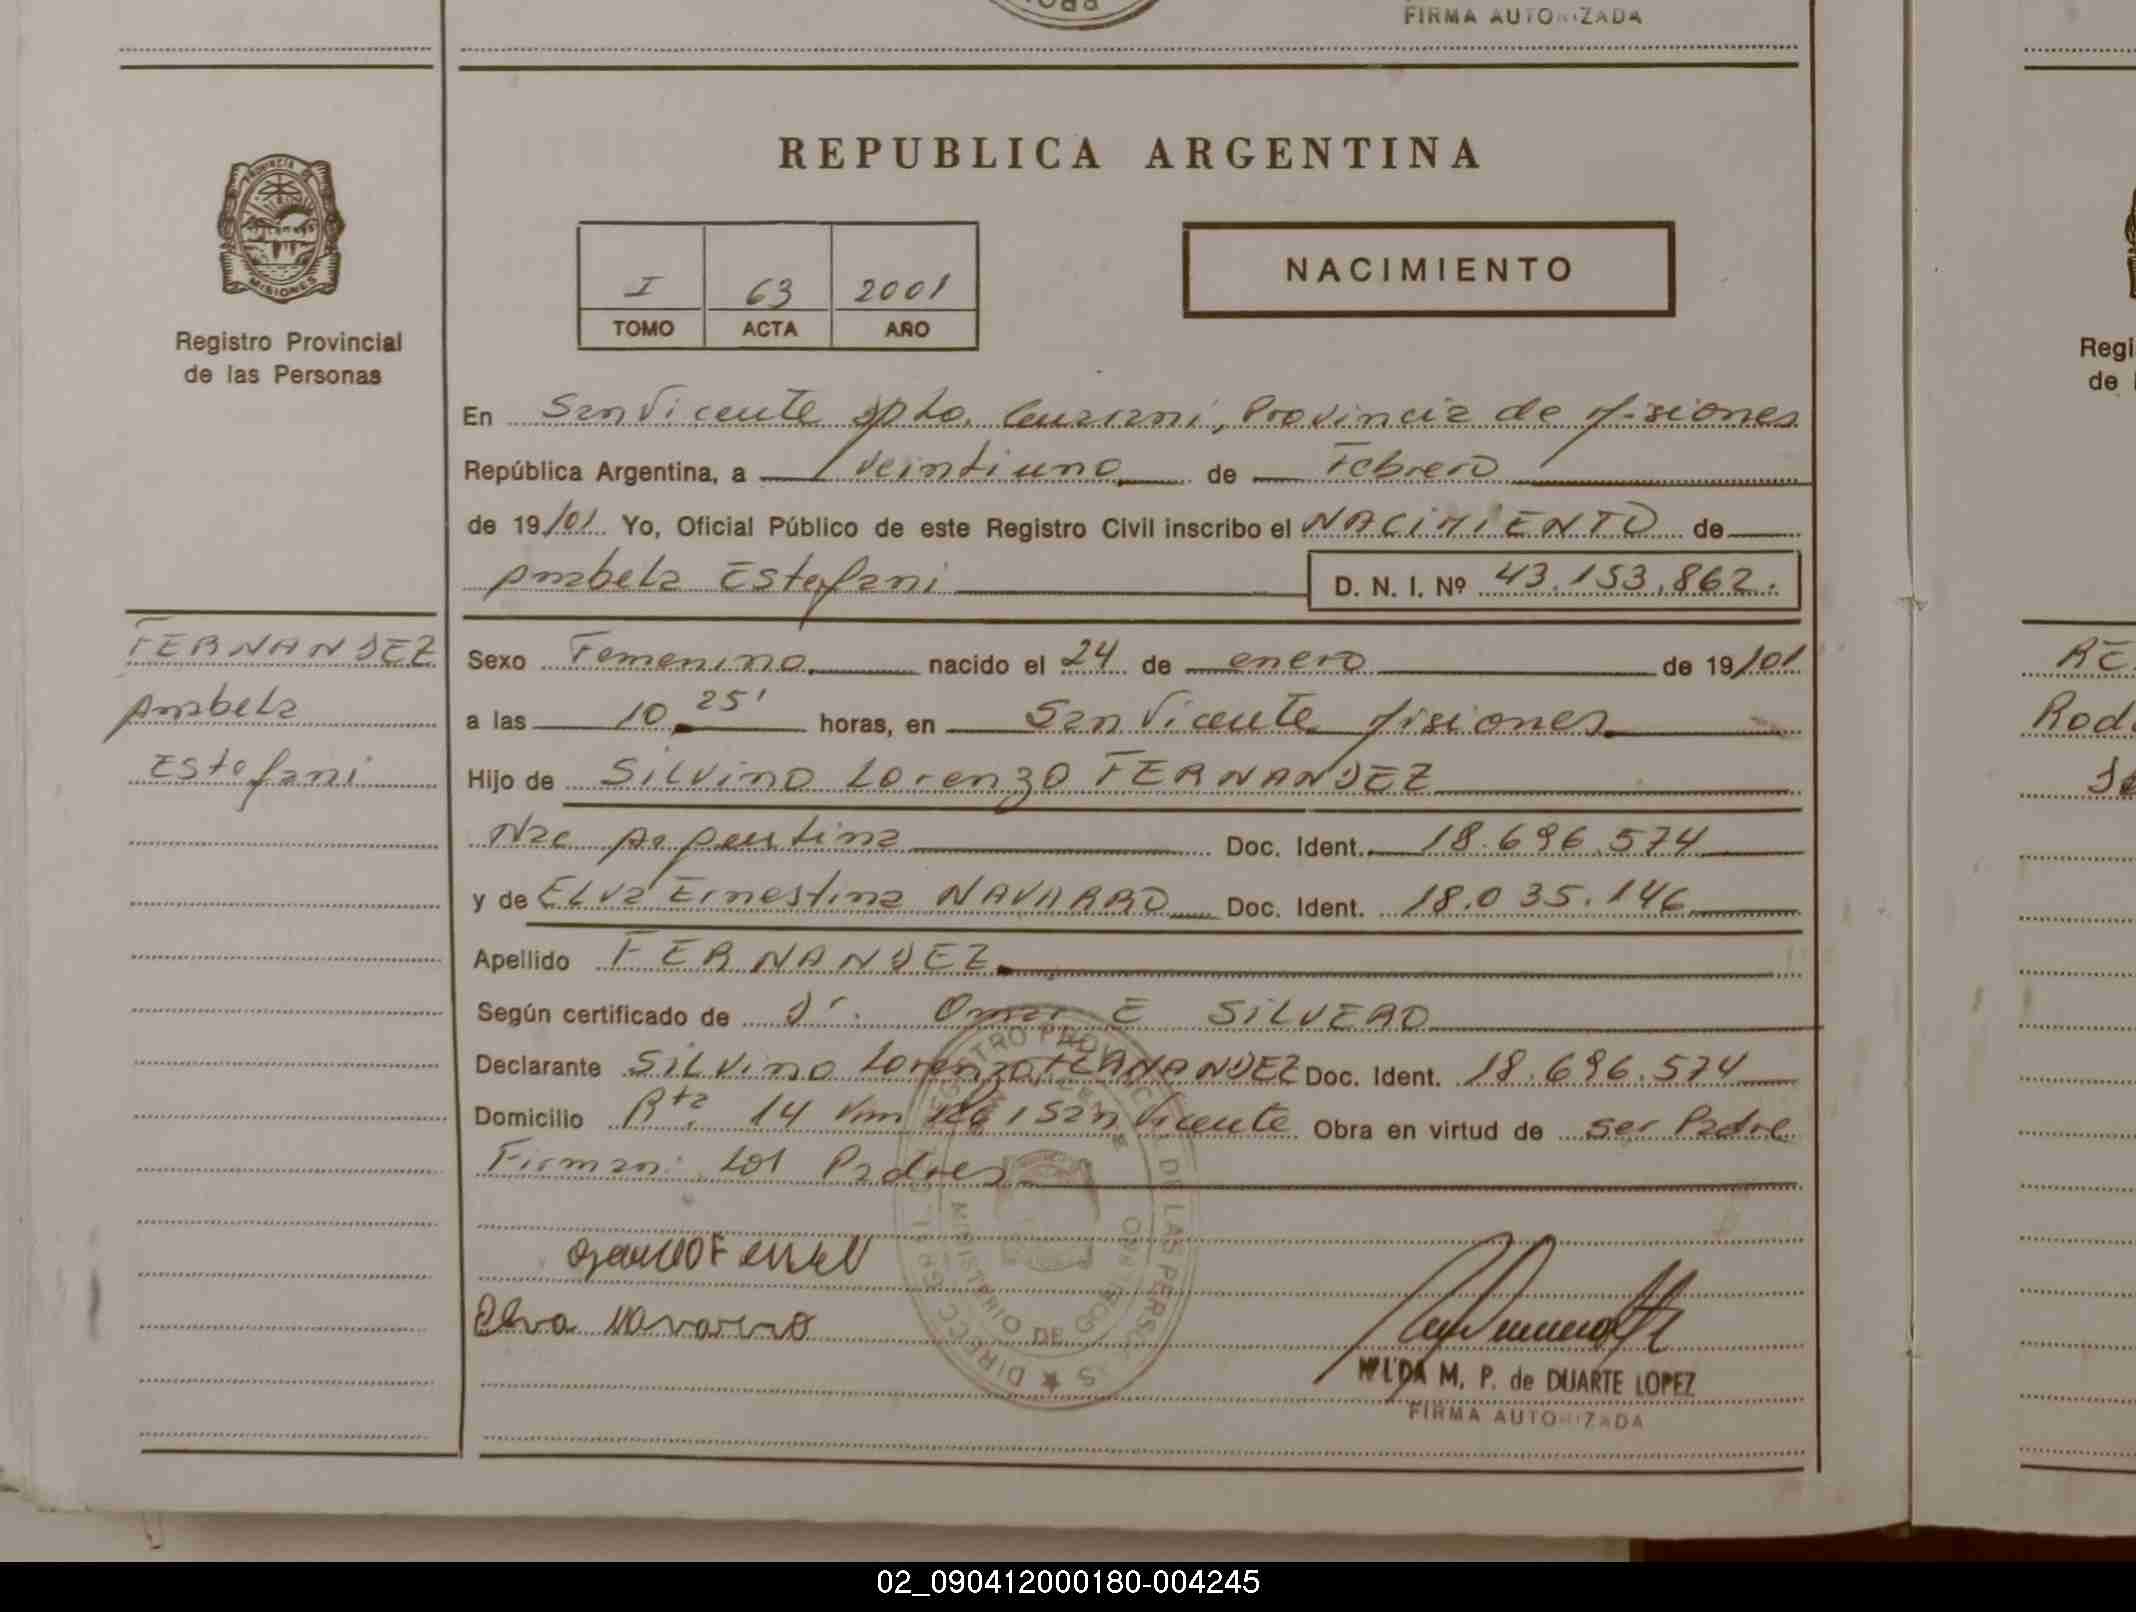 FIRMA AUTORIZADA
REPUBLICA ARGENTINA
PROVINCIA DE
MISIONES
Registro Provincial
de las Personas
I 63 2001
TOMO ACTA AÑO
NACIMIENTO
En San Vicente Dpto. Guaraní, Provincia de Misiones
República Argentina, a veintiuno de Febrero
de 19/01 Yo, Oficial Público de este Registro Civil inscribo el NACIMIENTO de
Anabela Estefani D. N. I. Nº 43.153.862.
FERNANDEZ
Anabela
Estefani
Sexo Femenino nacido el 24 de enero de 19/01
a las 10 25' horas, en San Vicente Misiones
Hijo de Silvino Lorenzo FERNANDEZ
Nac Argentina Doc. Ident. 18.696.574
y de Elva Ernestina NAVARRO Doc. Ident. 18.035.146
Apellido FERNANDEZ
Según certificado de Dr. Omar E SILVERO
Declarante Silvino Lorenzo FERNANDEZ Doc. Ident. 18.696.574
Domicilio Rta. 14 Km San Vicente Obra en virtud de ser Padre
Firman: Los Padres
Elva Navarro
M. P. de DUARTE LOPEZ
FIRMA AUTORIZADA
REGISTRO PROVINCIAL DE LAS PERSONAS
MINISTERIO DE GOBIERNO
Regi
de
Rod
02_090412000180-004245